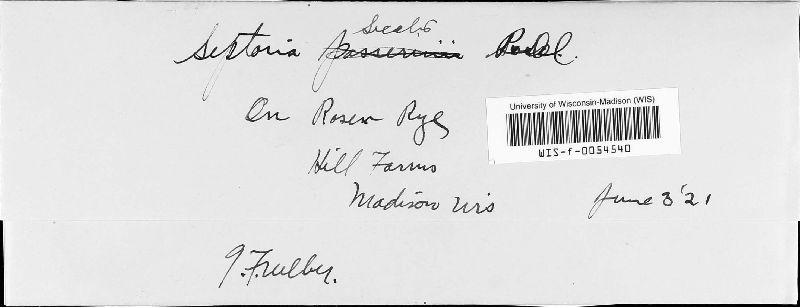 Secalis
Septoria passerinii
On Rosen Rye
University of Wisconsin-Madison (WIS)
WIS-f-0054540
Hill Farms
Madison Wis June 3 '21